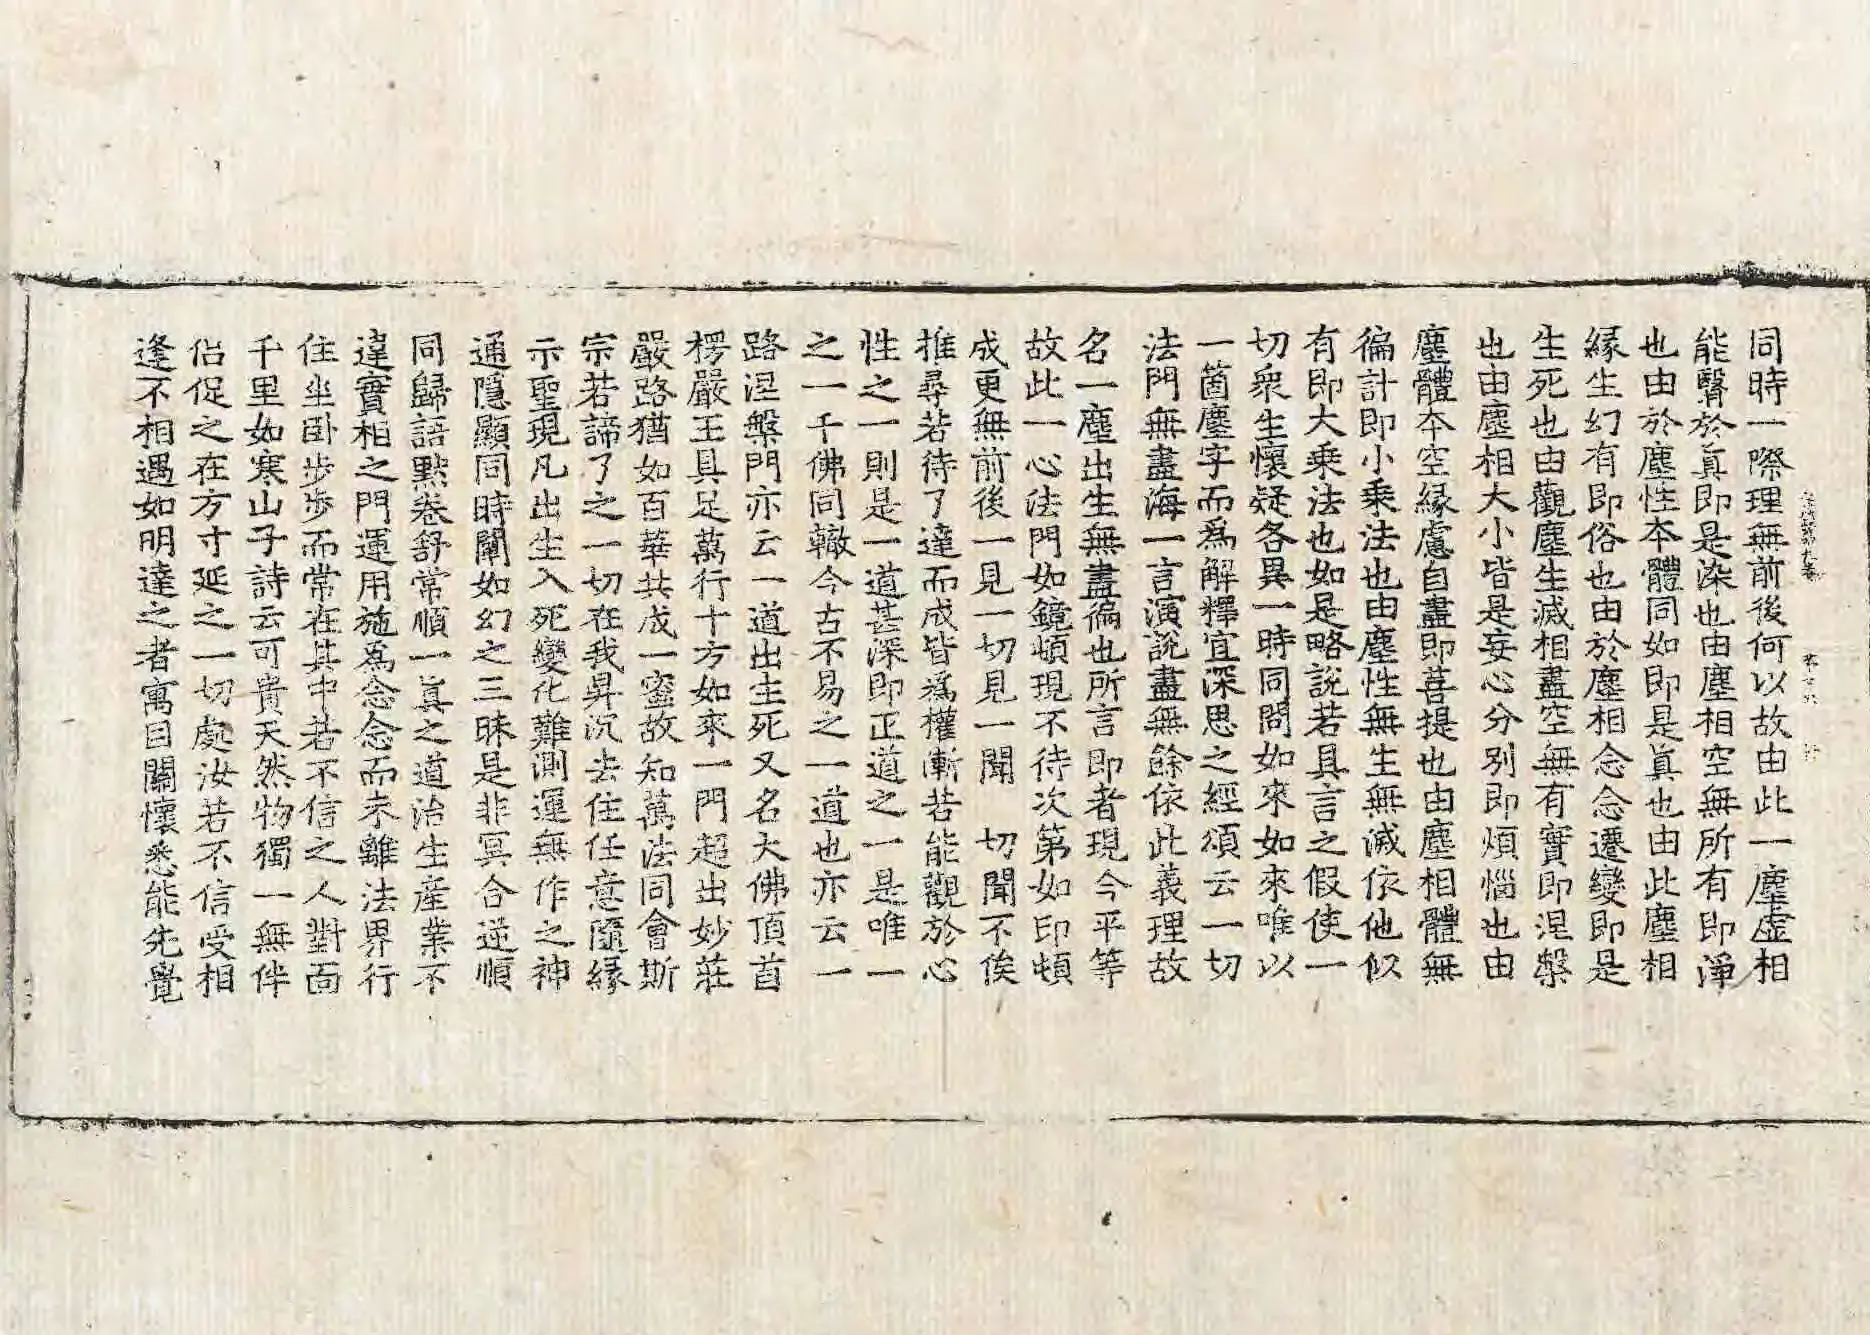 同時一際理無前後何以故由此一塵虛相
能翳於眞即是染也由塵相空無所有即淨
也由於塵性本體同如即是眞也由此塵相
緣生幻有即俗也由於塵相念念遷變即是
生死也由觀塵生滅相盡空無有實即涅槃
也由塵相大小皆是妄心分別即煩惱也由
塵體本空緣慮自盡即菩提也由塵相體無
徧計即小乘法也由塵性無生無滅依他似
有即大乘法也如是略說若具言之假使一
切衆生懷疑各異一時同問如來如來唯以
一箇塵字而爲解釋宜深思之經頌云一切
法門無盡海一言演說盡無餘依此義理故
名一塵出生無盡徧也所言即者現今平等
故此一心法門如鏡頓現不待次第如印頓
成更無前後一見一切見一聞 切聞不俟
推尋若待了達而成皆爲權漸若能觀於心
性之一則是一道甚深即正道之一是唯一
之一千佛同轍今古不易之一道也亦云一
路涅槃門亦云一道出生死又名大佛頂首
楞嚴王具足萬行十方如來一門超出妙莊
嚴路猶如百華共成一蜜故知萬法同會斯
宗若諦了之一切在我昇沉去住任意隨緣
示聖現凡出生入死變化難測運無作之神
通隱顯同時闡如幻之三昧是非冥合逆順
同歸語默卷舒常順一眞之道治生產業不
違實相之門運用施爲念念而未離法界行
住坐卧步步而常在其中若不信之人對面
千里如寒山子詩云可貴天然物獨一無伴
侣促之在方寸延之一切處汝若不信受相
逢不相遇如明達之者寓目關懷悉能先覺